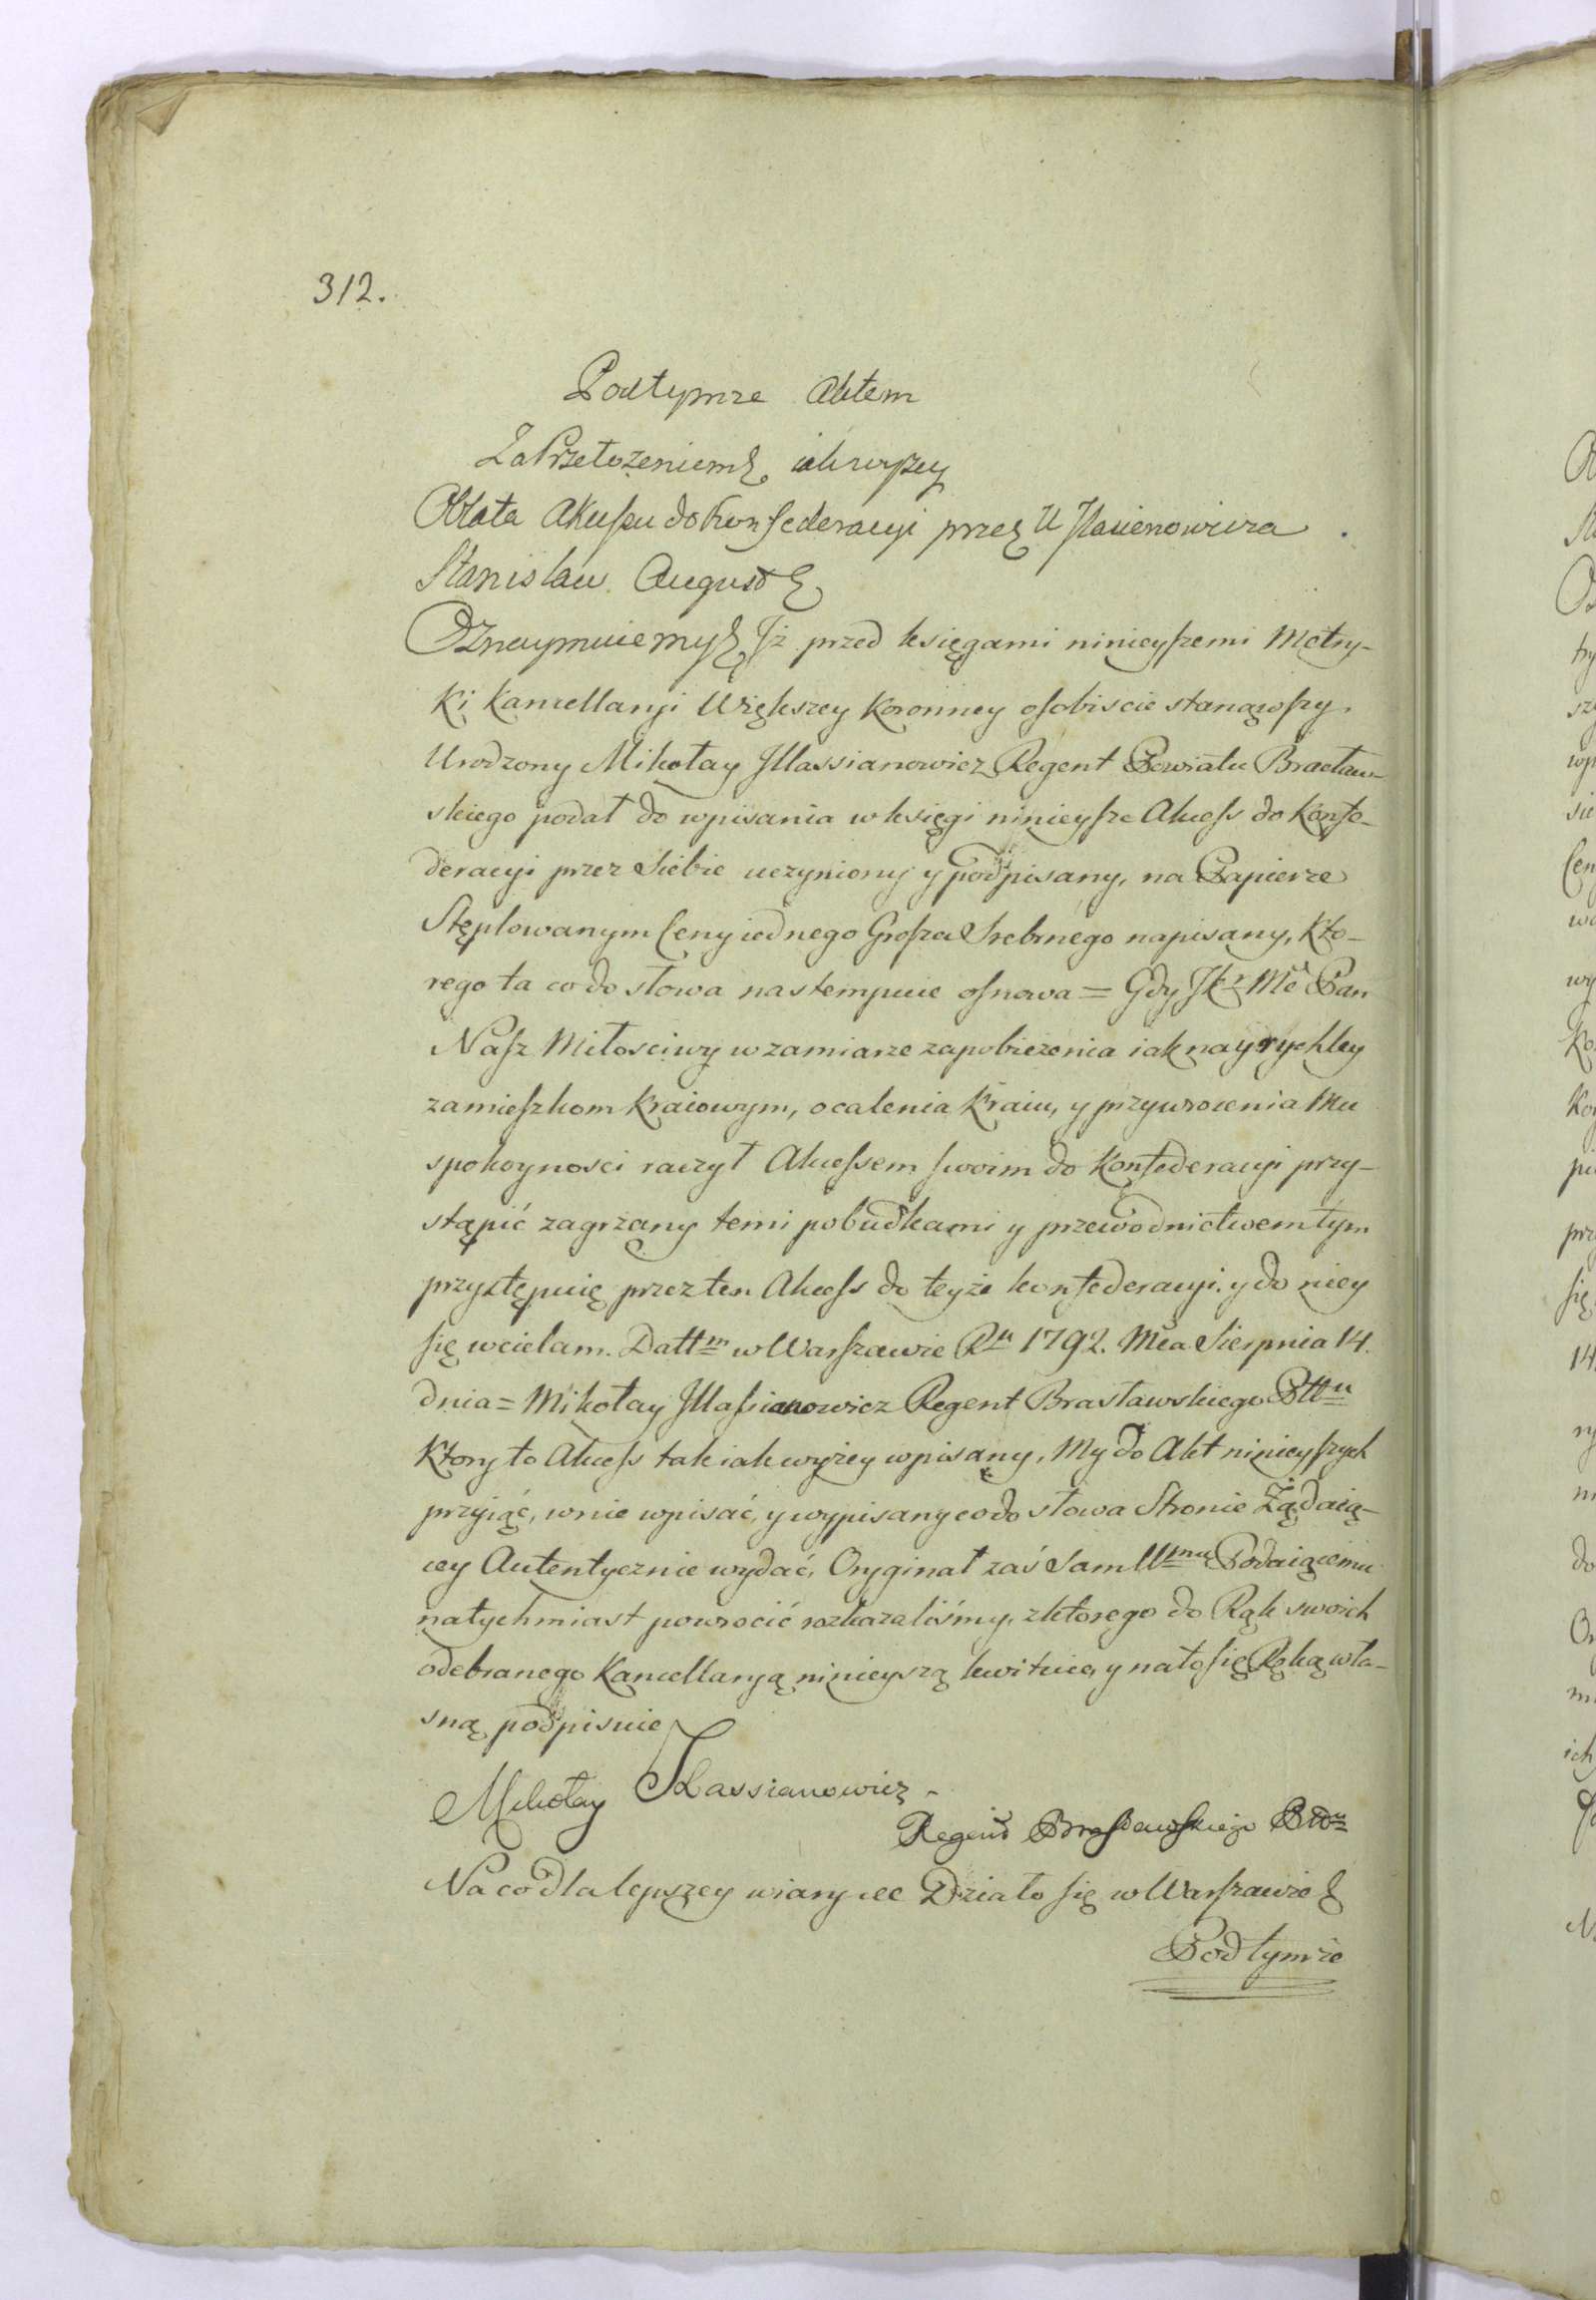 312.
Podtymze Aktem
Za Przełożeniem &c iak wyżey
Oblata Akcessu do Konfederacyi przez U Jllacienowicza
Stanislaw August &c
Oznaymuiemy &c Jż przed księgami ninieyszemi Metry-
ki Kancellaryi Większey Koronney osobiscie stanąwszy
Urodzony Mikołay Jllassianowicz Regent Powiatu Bracław-
skiego podał do wpisania w księgi ninieysze Akcess do Konfe-
deracyi przez siebie uczyniony y podpisany, na Papierze
Stęplowanym Ceny iednego Grosza Srebrnego napisany, Kto-
rego ta co do słowa nastempuie osnowa = Gdy JKr Mć Pan
Nasz Miłosciwy w zamiarze zapobieżenia iak nayrychley
zamieszkom Kraiowym, ocalenia Kraiu, y przywrocenia Mu
spokoynosci raczył Akcessem swoim do Konfederacyi przy-
stąpić zagrzany temi pobudkami y przewodnictwem tym
przystępuię przez ten Akcess do teyże konfederacyi y do niey
się wcielam. Dattm w Warszawie Ru 1792. Mca Sierpnia 14.
dnia = Mikołay Jllassianowicz Regent Brasławskiego Pttu
Ktory to Akcess tak iak wyżey wpisany, My do Akt ninieyszych
przyiąć, w nie wpisać, y wypisany co do słowa Stronie Żądaią-
cey Autentycznie wydać, Oryginał zaś Sam Urmu Podaiącemu
natychmiast powrocić rozkazaliśmy, z ktorego do Rąk swoich
odebranego Kancellaryą ninieyszą kwituie, y na to się Ręką wła-
sną podpisuie
Mikołay Jllassianowicz
Regent Brasławskiego Pttu
Na co dla lepszey wiary &c Działo się w Warszawie &c
Podtymże